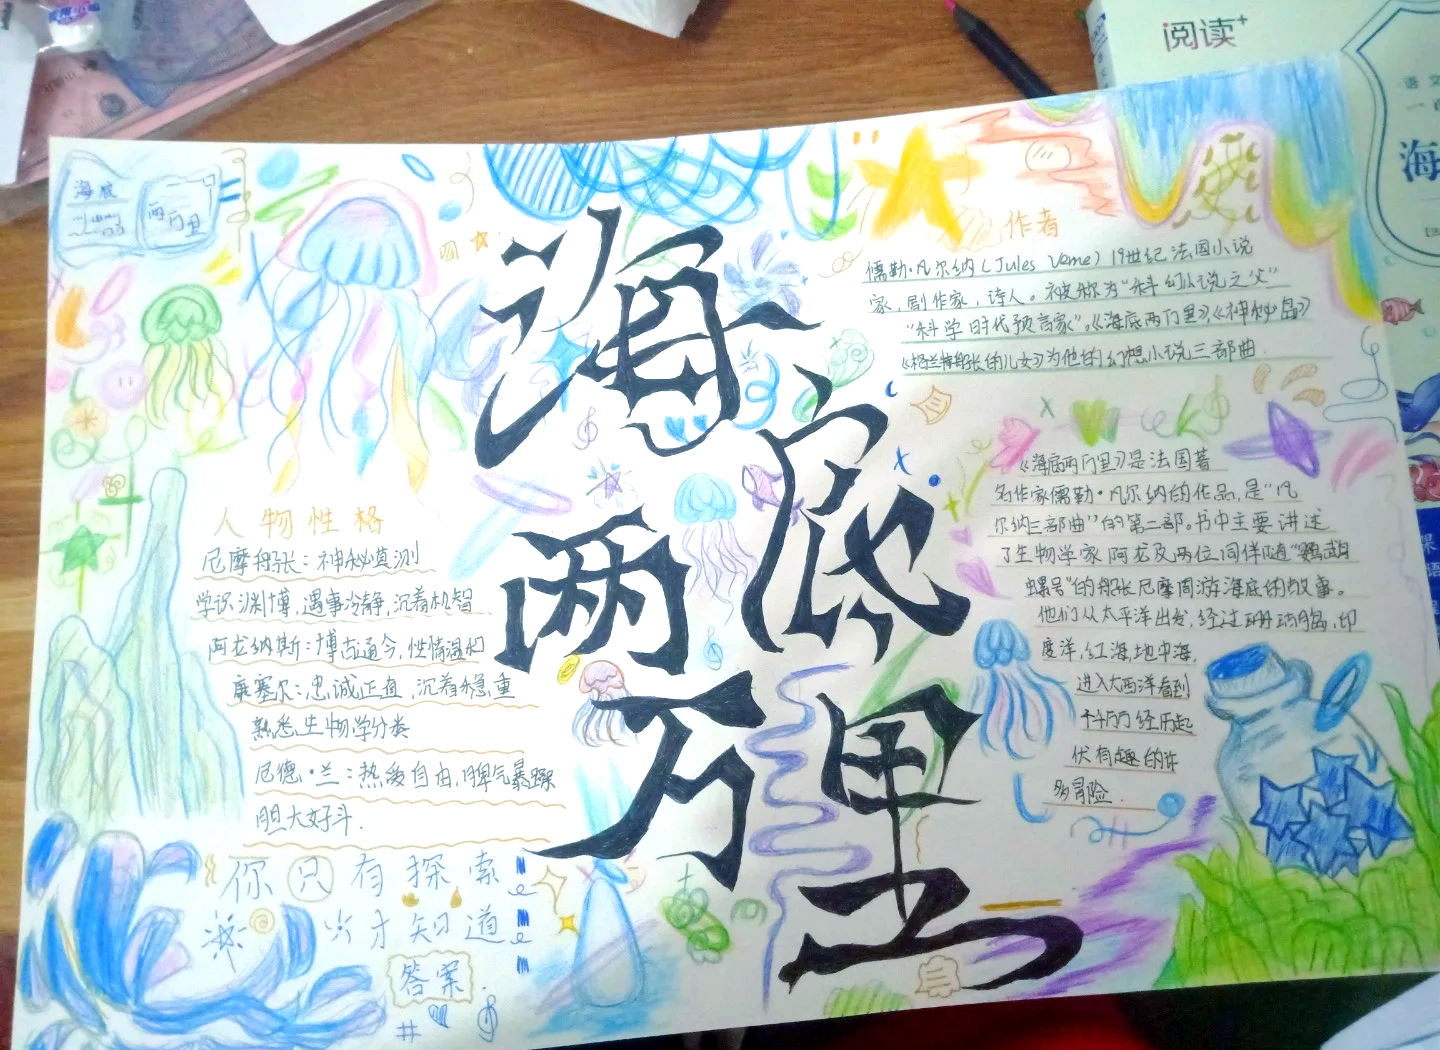 阅读+
海
海底
两万里
海底两万里
作者
儒勒·凡尔纳(Jules Verne)19世纪法国小说
家,剧作家,诗人。被称为“科幻小说之父”
“科学时代预言家”。《海底两万里》《神秘岛》
《格兰特船长的儿女》为他的幻想小说三部曲.
《海底两万里》是法国著
名作家儒勒·凡尔纳的作品,是“凡
尔纳三部曲”的第二部。书中主要讲述
了生物学家阿龙及两位同伴随“鹦鹉
螺号”的船长尼摩周游海底的故事。
他们从太平洋出发,经过珊瑚岛,印
度洋,红海,地中海,
进入大西洋看到
经历起
伏有趣的许
多冒险.
人物性格
尼摩船长:神秘莫测
学识渊博,遇事冷静,沉着机智
阿龙纳斯:博古通今,性情温和
康塞尔:忠诚正直,沉着稳重
熟悉生物学分类
尼德·兰:热爱自由,脾气暴躁
胆大好斗.
你只有探索
才知道
答案.